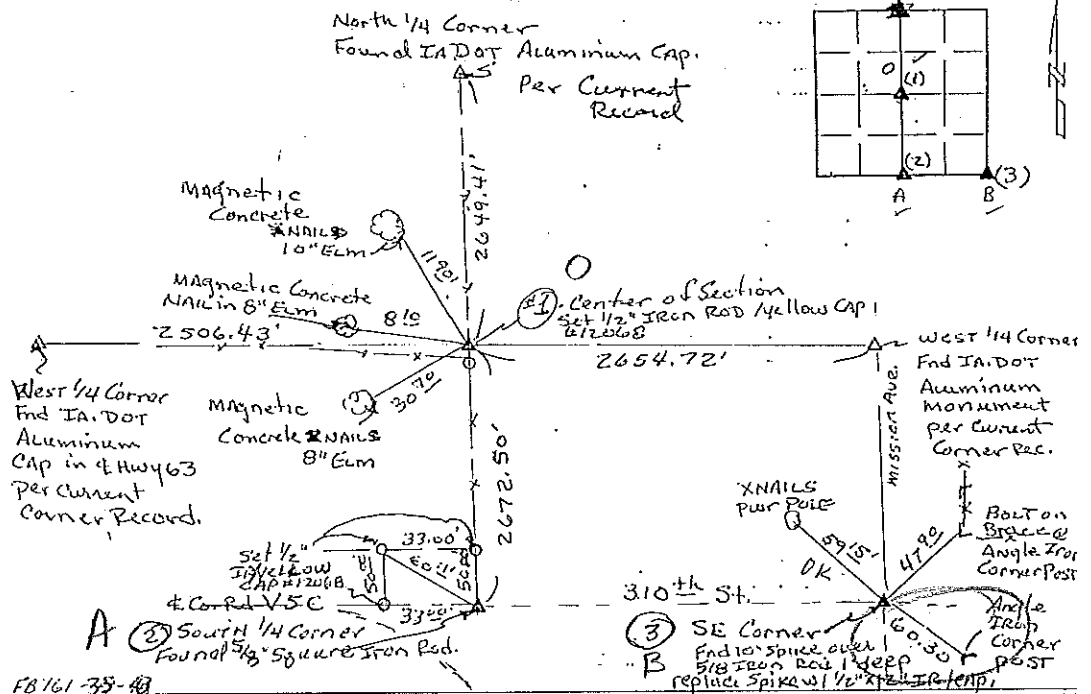 North 1/4 Corner
Found IA.DOT Aluminium CAP.
Per Current
Record
2649.41'
(1)
(2)
(3)
A
B
O
N
MAgnetic
Concrete
XNAILS
10" ELM
1190'
MAgnetic Concrete
NAIL in 8" ELM
8 10
O
#1. Center of Section
Set 1/2" IRON ROD /yellow CAP 1
#12068
2506.43'
2654.72'
West 1/4 Corner
Fnd IA.DOT
Aluminum
CAP in ℄ Hwy 63
per Current
Corner Record.
West 1/4 Corner
Fnd IA.DOT
Aluminum
Monument
per Current
Corner Rec.
MAgnetic
Concrete XNAILS
8" ELM
30 70
2672.50'
MISSION AVE.
XNAILS
PWR POLE
59 15'
OK
47 90
BOLT ON
Brace @
Angle Iron
Corner Post
Set 1/2"
IR/YELLOW
CAP #12068
33.00'
50.00'
60.11'
50.00'
33.00'
℄ Co. Rd. V5C
310th St.
60.30
Angle
Iron
Corner
POST
A (2) South 1/4 Corner
Found 5/8" Square Iron Rod.
(3) SE Corner
B
Fnd 10" Spike over
5/8 Iron Rod 1' deep
replace Spike w/ 1/2" X 72" IR/CAP,
FB161-39-43